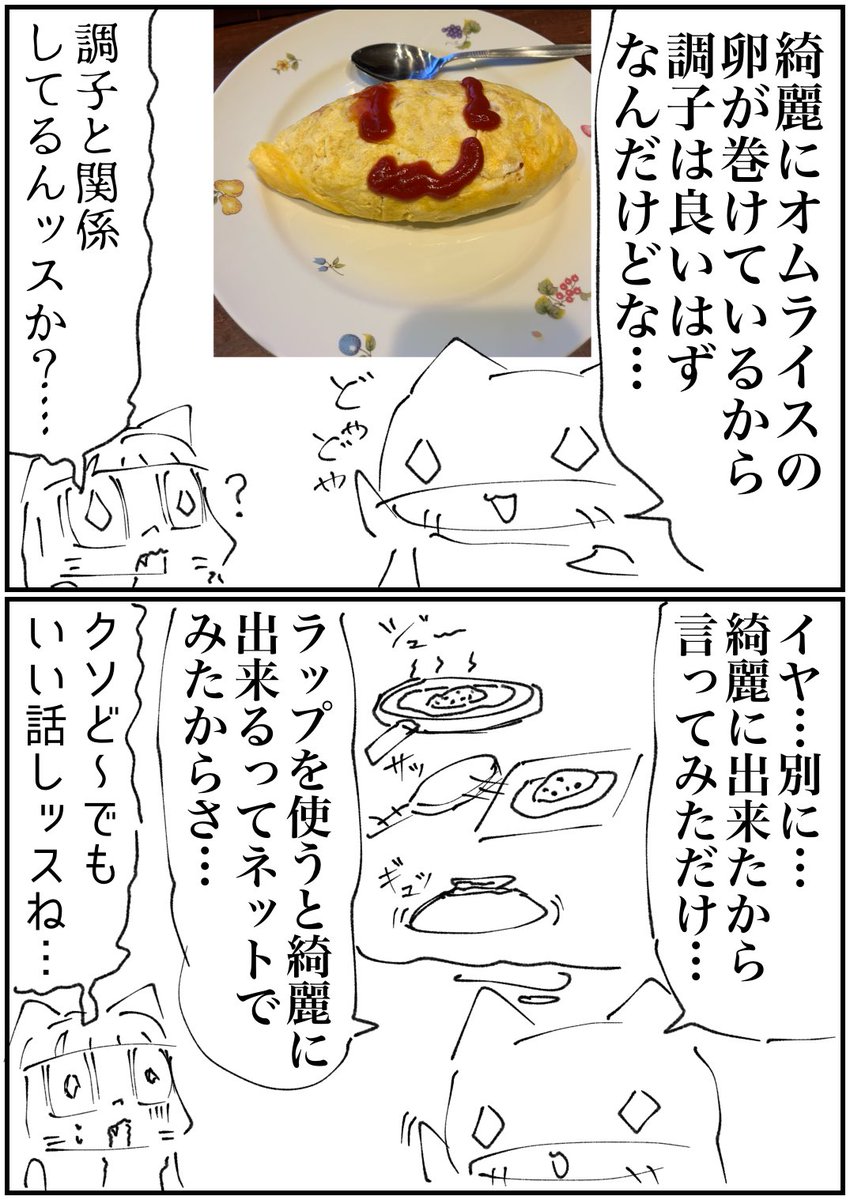 綺麗にオムライスの
卵が巻けているから
調子は良いはず
なんだけどな…
どやどや
調子と関係
してるんッスか?……
?
イヤ…別に…
綺麗に出来たから
言ってみただけ…
ジュ〜
サッ
ギュッ
ラップを使うと綺麗に
出来るってネットで
みたからさ…
クソど〜でも
いい話しッスね…